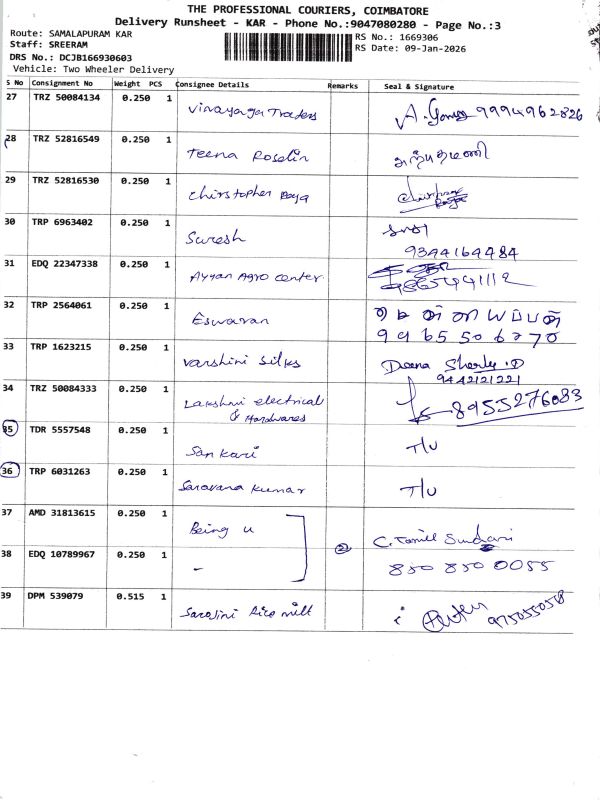 THE PROFESSIONAL COURIERS, COIMBATORE
Delivery Runsheet - KAR - Phone No.:9047080280 - Page No.:3
Route: SAMALAPURAM KAR
RS No.: 1669306
Staff: SREERAM
RS Date: 09-Jan-2026
DRS No.: DCJB166930603
Vehicle: Two Wheeler Delivery
S No Consignment No Weight PCS Consignee Details Remarks Seal & Signature
27 TRZ 50084134 0.250 1 Vinayaga Traders 9994962826
28 TRZ 52816549 0.250 1 Teena Roselin
29 TRZ 52816530 0.250 1 Christopher
30 TRP 6963402 0.250 1 Suresh
9344164484
31 EDQ 22347338 0.250 1 Ayyan Agro center
32 TRP 2564061 0.250 1 Eswaran
9965506270
33 TRP 1623215 0.250 1 Varshini Silks Deena Sherly .D
9442121221
34 TRZ 50084333 0.250 1 Lakshmi electrical
& Hardwares 8955276083
35 TDR 5557548 0.250 1 Sankari T/U
36 TRP 6031263 0.250 1 Saravana kumar T/U
37 AMD 31813615 0.250 1 Being u C. Tamil Sundari
2
38 EDQ 10789967 0.250 1 - 850 850 0055
39 DPM 539079 0.515 1 Sarojini Rice mill 9750550558